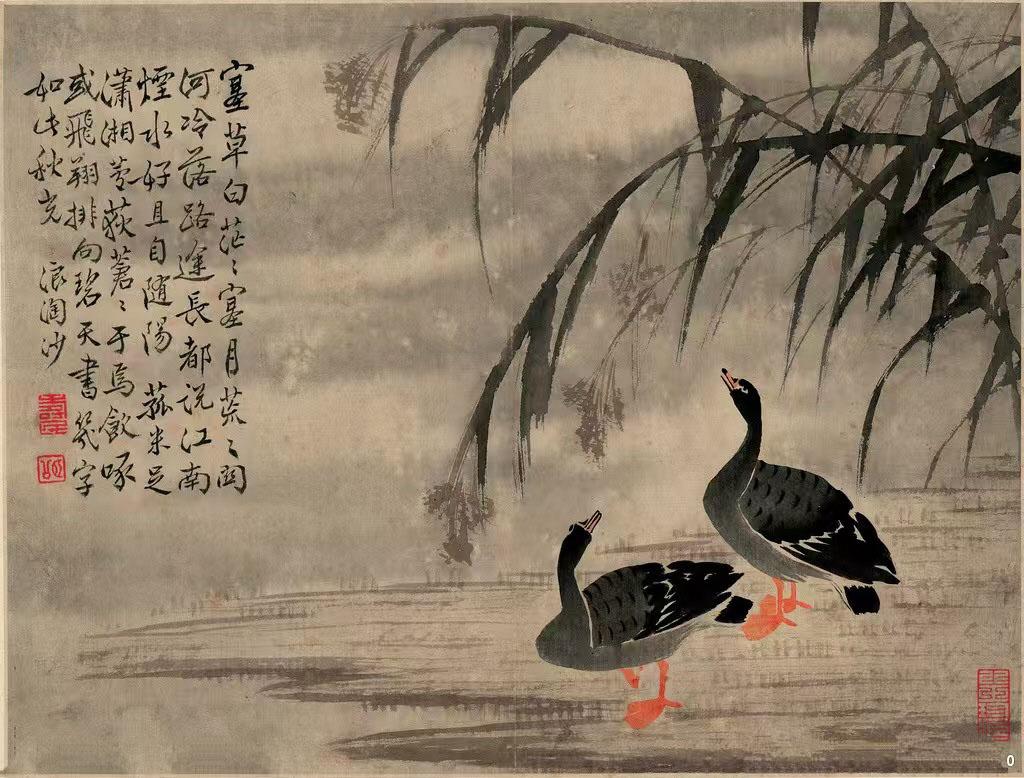 塞草白茫〻塞月荒〻関
河冷落路途長都说江南
煙水好且自随陽 菰米足
瀟湘芦荻蒼〻于焉飲啄
或飛翔排向碧天書幾字
如此秋光 浪淘沙
0